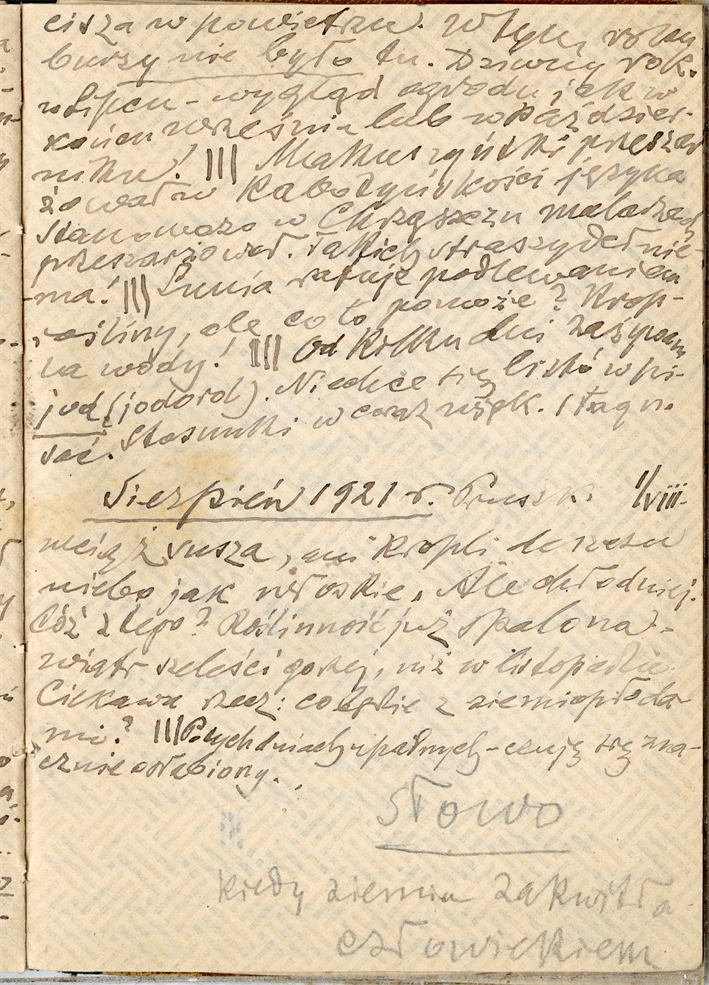 cisza w powietrzu. W tym roku
burzy nie było tu. Dziwny rok.
w Lipcu - wygląd ogrodu jak w
końcu września lub w Paździer-
niku! ||| Makuszyński przeszar-
żował w Kabotyńskości języka
stanowczo w Chrząszczu
przeszarżował. Takich straszydeł nie-
ma! ||| Lunia ratuje podlewaniem
rośliny, ale co to pomoże? Krop-
la wody! ||| Od kilku dni zażywam
jod (jodoid). Nie chce się listów pi-
sać. Stosunki w coraz więk.
Sierpień 1921 r. Pruszk. 1/VIII
wciąż susza, ani kropli deszczu
niebo jak włoskie. Ale chłodniej.
Cóż z tego? Roślinność już spalona -
wiatr szeleści gorzej, niż w listopadzie
Ciekawa rzecz: co będzie z ziemiopłoda-
mi? ||| Po tych dniach upalnych - czuję się zna-
cznie osłabiony.
Słowo
kiedy ziemia zakwitła
człowiekiem